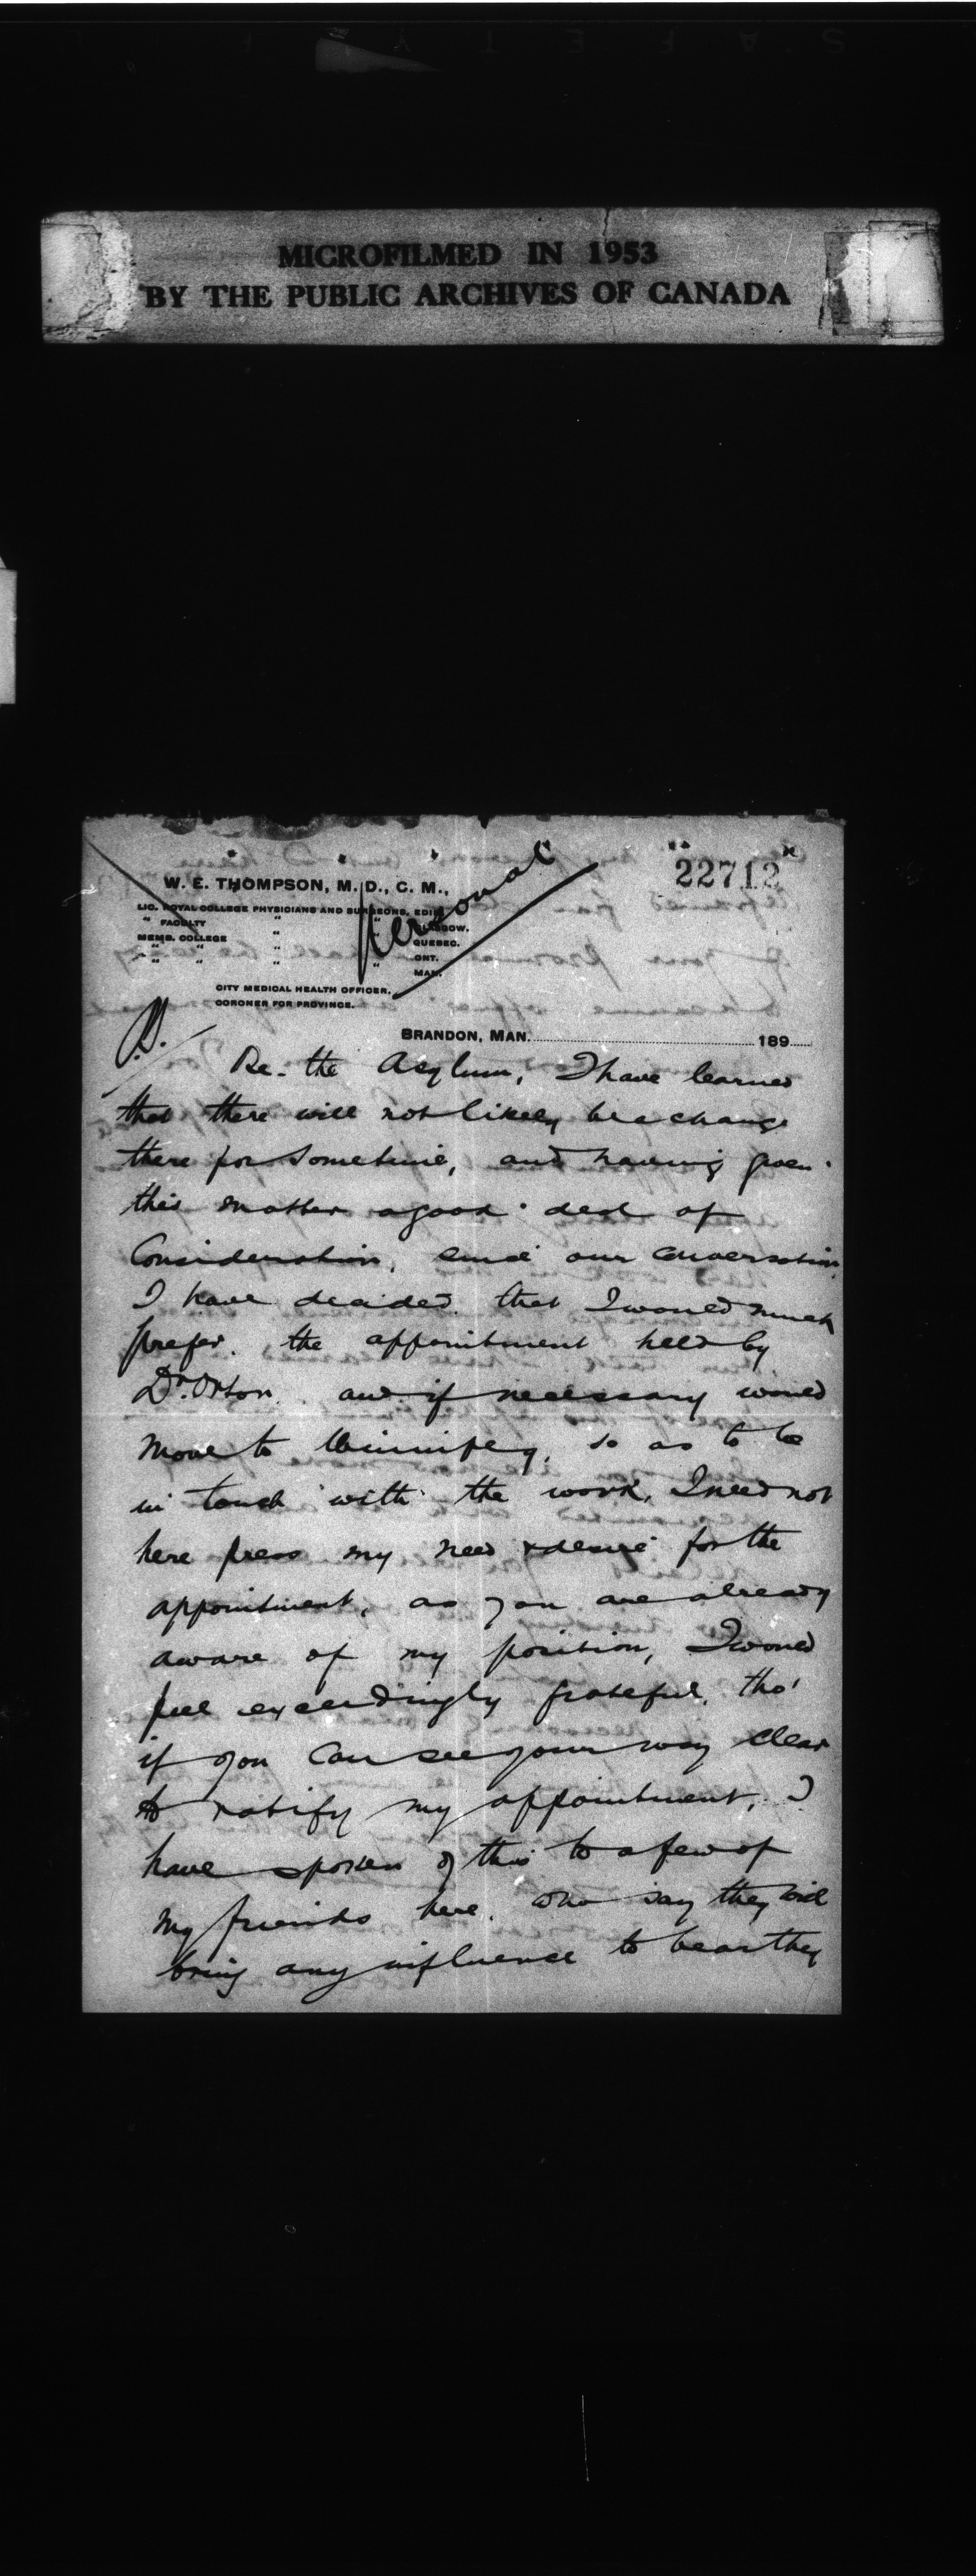 MICROFILMED IN 1953
BY THE PUBLIC ARCHIVES OF CANADA
22712
Personal
W. E. THOMPSON, M. D., C. M.,
LIC. ROYAL COLLEGE PHYSICIANS AND SURGEONS, EDIN.
" FACULTY " " GLASGOW.
MEMB. COLLEGE " QUEBEC.
" " " " ONT.
" " " MAN.
CITY MEDICAL HEALTH OFFICER.
CORONER FOR PROVINCE.
BRANDON, MAN. 189
Re. the Asylum, I have learned
that there will not likely be a change
there for sometime, and having given
this matter a good deal of
Consideration, since our conversation
I have decided that I would much
prefer. the appointment held by
Dr. Orton. and if necessary would
move to Winnipeg, so as to be
in touch with the work, I need not
here press my need & desire for the
appointment, as you are already
aware of my position, I would
feel exceedingly grateful, tho'
if you can see your way clear
to ratify my appointment, I
have spoken of this to a few of
my friends here. who say they will
bring any influence to bear they